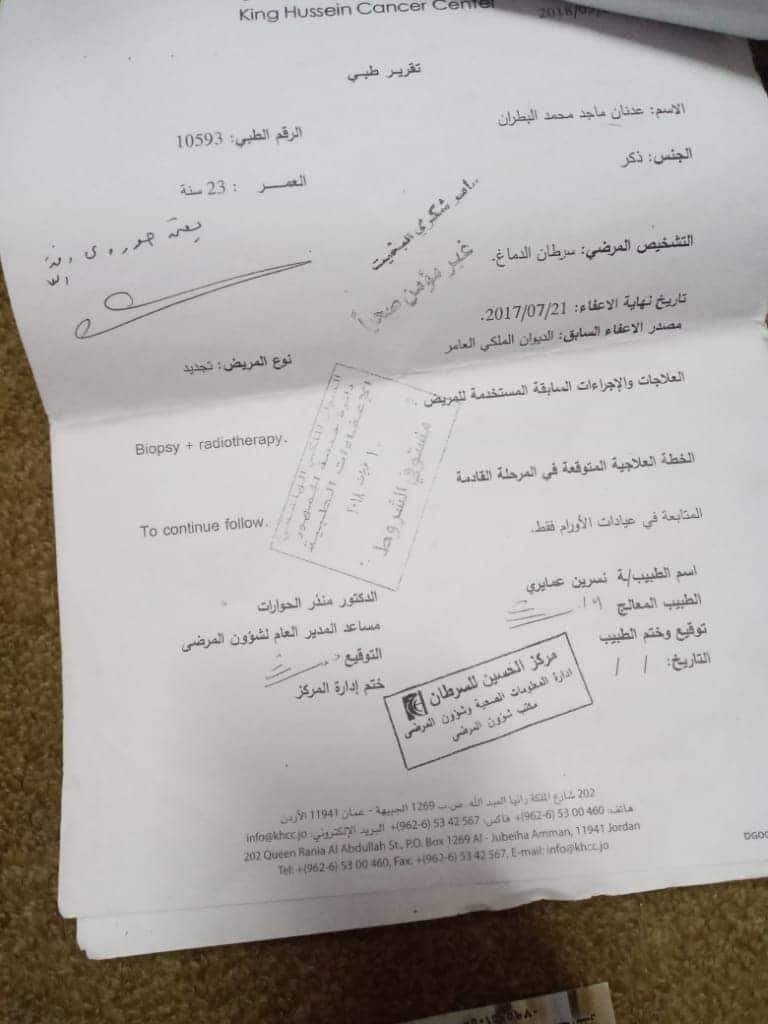 King Hussein Cancer Center
تقرير طبي
الاسم: عدنان ماجد محمد البطران
الرقم الطبي: 10593
الجنس: ذكر
العمـــر : 23 سنة
التشخيص المرضي: سرطان الدماغ.
غير مؤمن صحياً
تاريخ نهاية الاعفاء: 2017/07/21.
مصدر الاعفاء السابق: الديوان الملكي العامر
نوع المريض: تجديد
العلاجات والإجراءات السابقة المستخدمة للمريض:
Biopsy + radiotherapy.
الخطة العلاجية المتوقعة في المرحلة القادمة
To continue follow.
المتابعة في عيادات الأورام فقط.
مستوفي الشروط
اسم الطبيب/ـة نسرين عمايري
الطبيب المعالج
توقيع وختم الطبيب
التاريخ: / /
الدكتور منذر الحوارات
مساعد المدير العام لشؤون المرضى
التوقيع
ختم إدارة المركز
مركز الحسين للسرطان
ادارة المعلومات الصحية وشؤون المرضى
مكتب شؤون المرضى
202 شارع الملكة رانيا العبد الله. ص.ب 1269 الجبيهة - عمان 11941 الأردن
هاتف: 460 00 53 (6-962)+ فاكس: 567 42 53 (6-962)+ البريد الإلكتروني: info@khcc.jo
202 Queen Rania Al Abdullah St., P.O. Box 1269 Al - Jubeiha Amman, 11941 Jordan
Tel: +(962-6) 53 00 460, Fax: +(962-6) 53 42 567, E-mail: info@khcc.jo